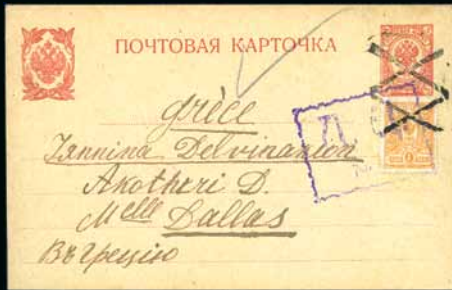 ПОЧТОВАЯ КАРТОЧКА
Grèce
Iannina Delvinanion
Akotheri D.
Melle Dallas
Въ Грецію